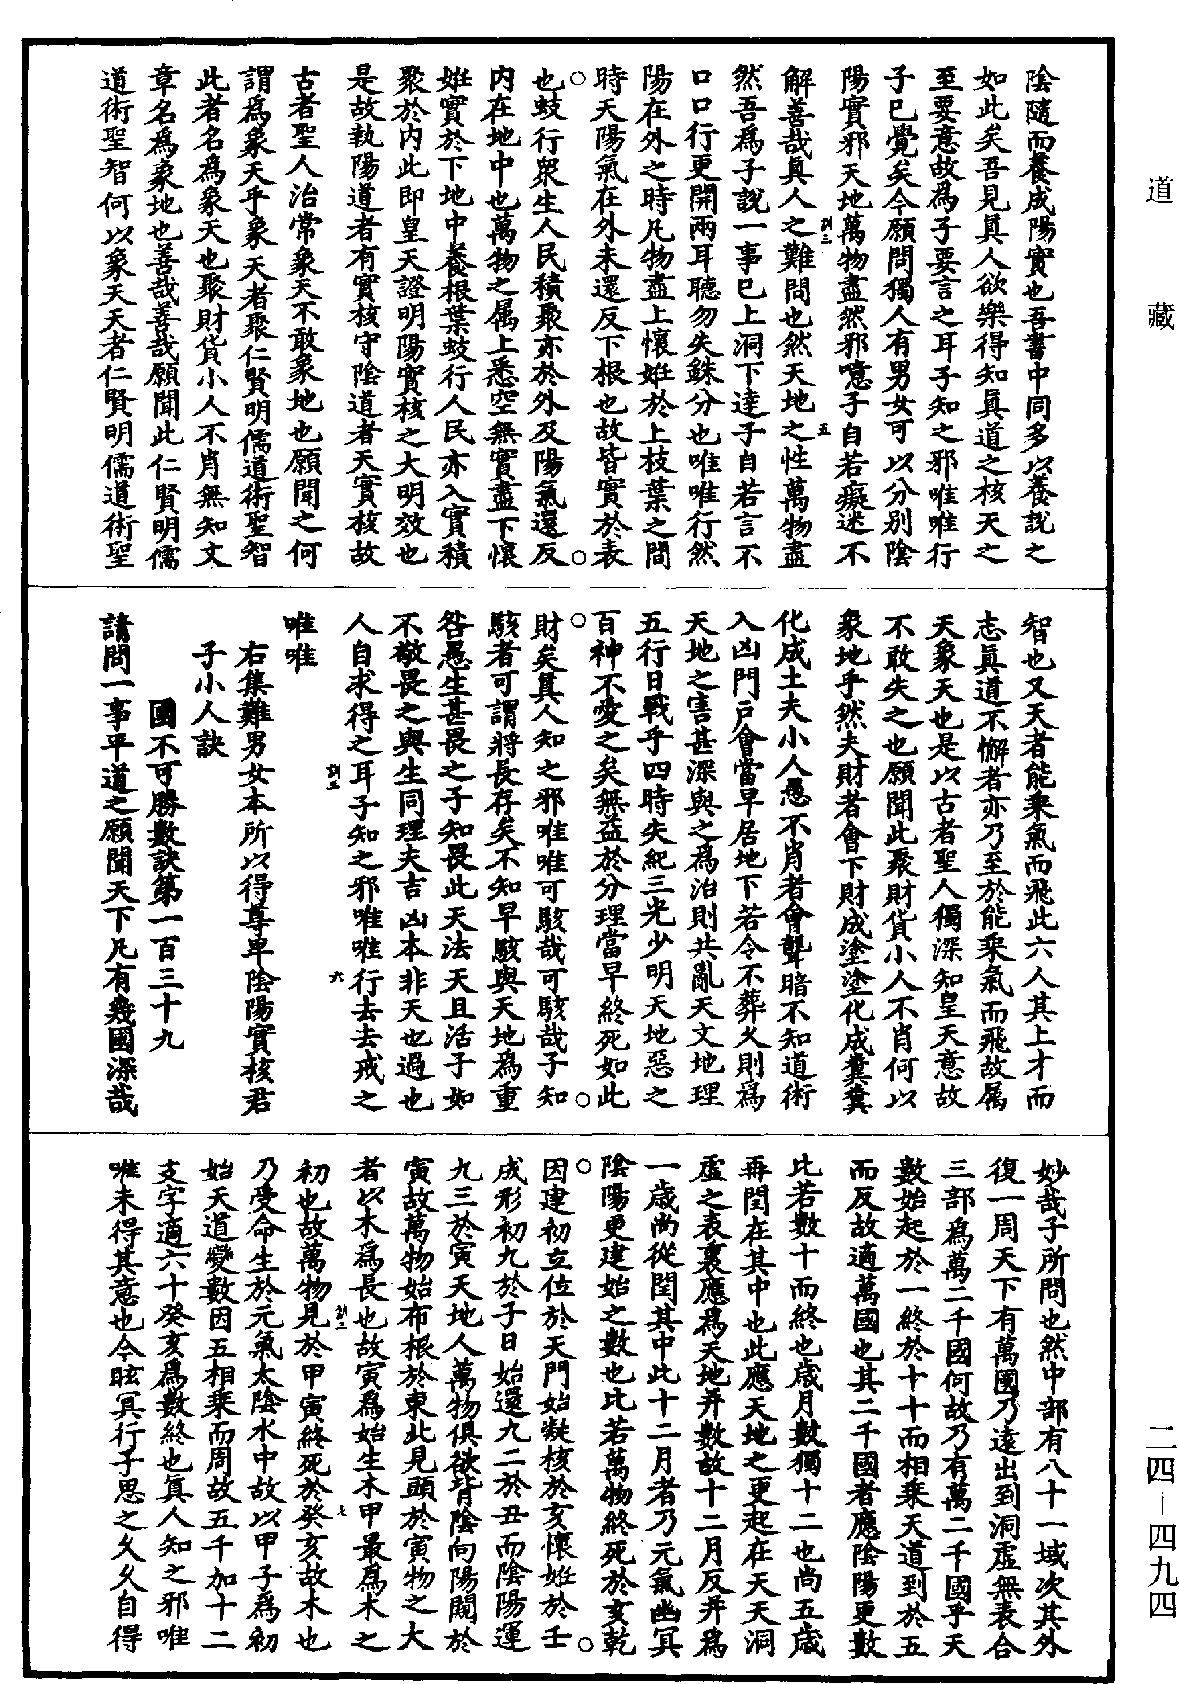 道藏
陰隨而養成陽實也吾書中同多以養說之
如此矣吾見真人欲樂得知真道之核天之
至要意故為子要言之耳子知之邪唯唯行
子已覺矣今願問獨人有男女可以分別陰
陽實邪天地萬物盡然邪噫子自若癡迷不
解善哉真人之難問也然天地之性萬物盡
然吾為子說一事已上洞下達子自若言不
口口行更開兩耳聽勿失銖分也唯唯行然
陽在外之時凡物盡上懷姙於上枝葉之間
時天陽氣在外未還反下根也故皆實於表
也蚑行衆生人民積聚亦於外及陽氣還反
内在地中也萬物之属上悉空無實盡下懷
姙實於下地中養根葉蚑行人民亦入實積
聚於内此即皇天證明陽實核之大明效也
是故執陽道者有實核守陰道者天實核故
古者聖人治常象天不敢象地也願聞之何
謂為象天乎象天者聚仁賢明儒道術聖智
此者名為象天也聚財貨小人不肖無知文
章名為象地也善哉善哉願聞此仁賢明儒
道術聖智何以象天天者仁賢明儒道術聖
智也又天者能乘氣而飛此六人其上才而
志真道不懈者亦乃至於能乘氣而飛故属
天象天也是以古者聖人獨深知皇天意故
不敢失之也願聞此聚財貨小人不肖何以
象地乎然夫財者會下財成塗塗化成糞糞
化成土夫小人愚不肖者會聾暗不知道術
入凶門戶會當早居地下若令不葬乆則為
天地之害甚深與之為治則共亂天文地理
五行日戰乎四時失紀三光少明天地惡之
百神不愛之矣無益於分理當早終死如此
財矣真人知之邪唯唯可駭哉可駭哉子知
駭者可謂將長存矣不知早駭與天地為重
咎愚生甚畏之子知畏此天法天且活子如
不敬畏之與生同理夫吉凶本非天也過也
人自求得之耳子知之邪唯唯行去去戒之
唯唯
右集難男女本所以得尊卑陰陽實核君
子小人訣
國不可勝數訣第一百三十九
請問一事平道之願聞天下凡有幾國深哉
妙哉子所問也然中部有八十一域次其外
復一周天下有萬國乃遠出到洞虛無表合
三部為萬二千國何故乃有萬二千國乎天
數始起於一終於十十而相乘天道到於五
而反故適萬國也其二千國者應陰陽更數
比若數十而終也歳月數獨十二也尚五歳
再閏在其中也此應天地之更起在天天洞
虛之表裏應為天地并數故十二月反并為
一歳尚從閏其中此十二月者乃元氣幽冥
陰陽更建始之數也比若萬物終死於亥乾
因建初立位於天門始凝核於亥懷姙於壬
成形初九於子日始還九二於丑而陰陽運
九三於寅天地人萬物俱欲背陰向陽闚於
寅故萬物始布根於東此見頭於寅物之大
者以木為長也故寅為始生木甲最為木之
初也故萬物見於甲寅終死於癸亥故木也
乃受命生於元氣太陰水中故以甲子為初
始天道變數因五相乘而周故五千加十二
支字適六十癸亥為數終也真人知之邪唯
唯未得其意也今眩冥行子思之乆乆自得
二四—四九四